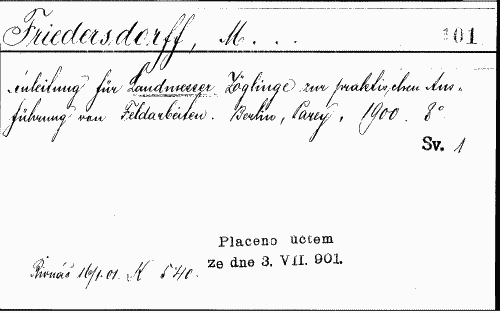 Friedersdorff, M. . . . 101
.nleitung für Landmesser Zöglinge zur praktischen Aus-
führung von Feldarbeiten. Berlin, Parey, 1900. 8°
Sv. 1
Placeno účtem
ze dne 3. VII. 901.
Rivnáč 16/1.01. K 5.40.